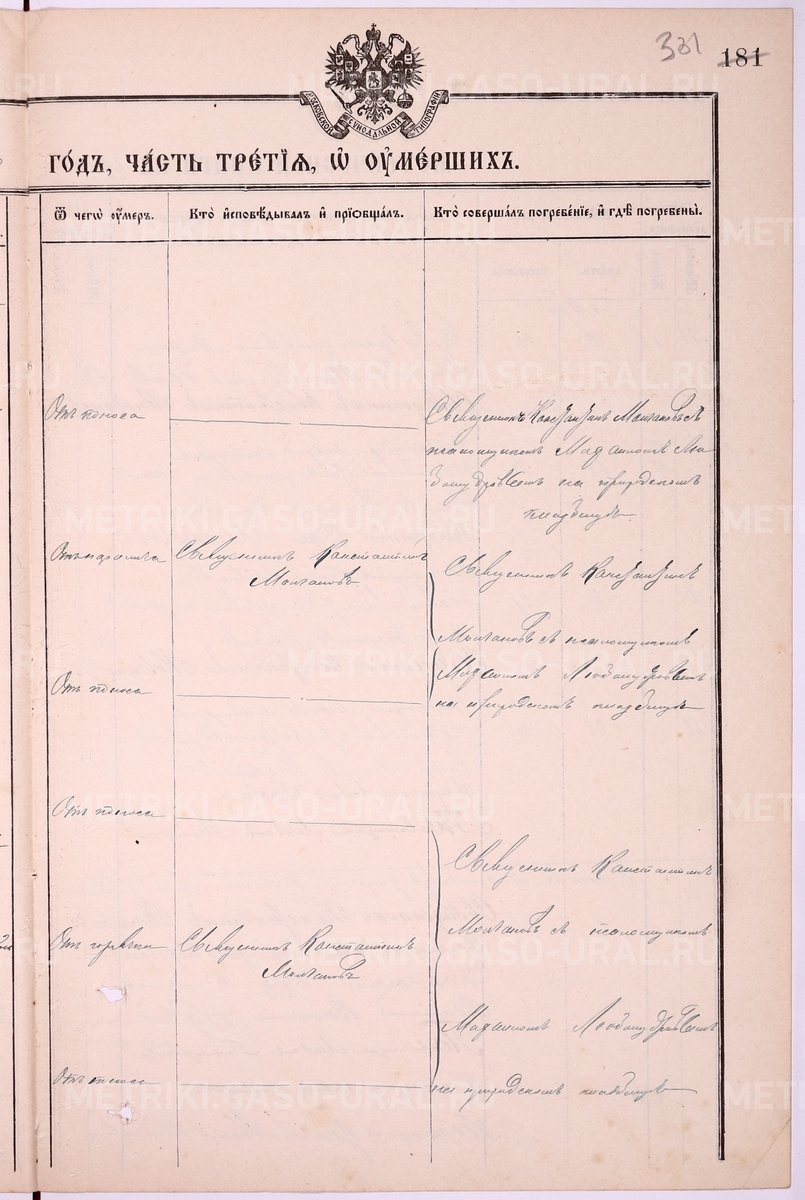 381 181
МОСКОВСКОЙ СѴНОДАЛЬНОЙ ТИПОГРАФІИ
го́дъ, ча́сть тре́тїѧ, ѡ҆ ᲂу҆ме́ршихъ.
Ѿ чегѡ̀ ᲂу҆́меръ.
Кто̀ и҆сповѣ́дывалъ и҆ прїѡбща́лъ.
Кто̀ соверша́лъ погребе́нїе, и҆ гдѣ̀ погребены̀.
Отъ поноса
Священникъ Константинъ Молчановъ съ
псаломщикомъ Любо
мудровымъ на приходскомъ
кладбищѣ.
Отъ паралича
Священникъ Константинъ
Молчановъ.
Священникъ Константинъ
Молчановъ съ псаломщикомъ
Любомудровымъ
на приходскомъ кладбищѣ
Отъ поноса
Отъ поноса
Священникъ Константинъ
Молчановъ съ псаломщикомъ
Любомудровымъ
на приходскомъ кладбищѣ
Отъ горячки
Священникъ Константинъ
Молчановъ
Отъ поноса
METRIKI.GASO-URAL.RU